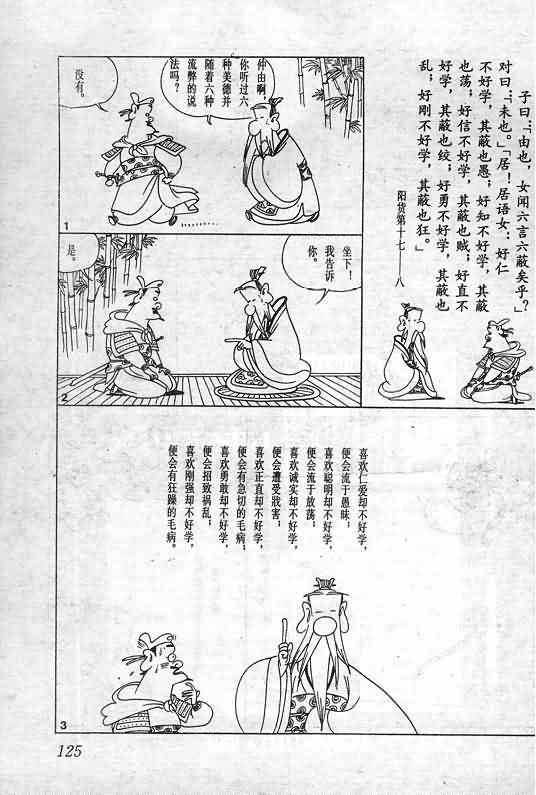 子曰：“由也，女闻六言六蔽矣乎？”
对曰：“未也。”“居！居语女：好仁
不好学，其蔽也愚；好知不好学，其蔽
也荡；好信不好学，其蔽也贼；好直不
好学，其蔽也绞；好勇不好学，其蔽也
乱；好刚不好学，其蔽也狂。”
阳货第十七——八
仲由啊
你听过六
种美德并
随着六种
流弊的说
法吗？
没有。
1
坐下！
我告诉
你。
是。
2
喜欢仁爱却不好学，
便会流于愚昧；
喜欢聪明却不好学，
便会流于放荡；
喜欢诚实却不好学，
便会遭受戕害；
喜欢正直却不好学，
便会有急切的毛病；
喜欢勇敢却不好学，
便会招致祸乱；
喜欢刚强却不好学，
便会有狂躁的毛病。
3
125